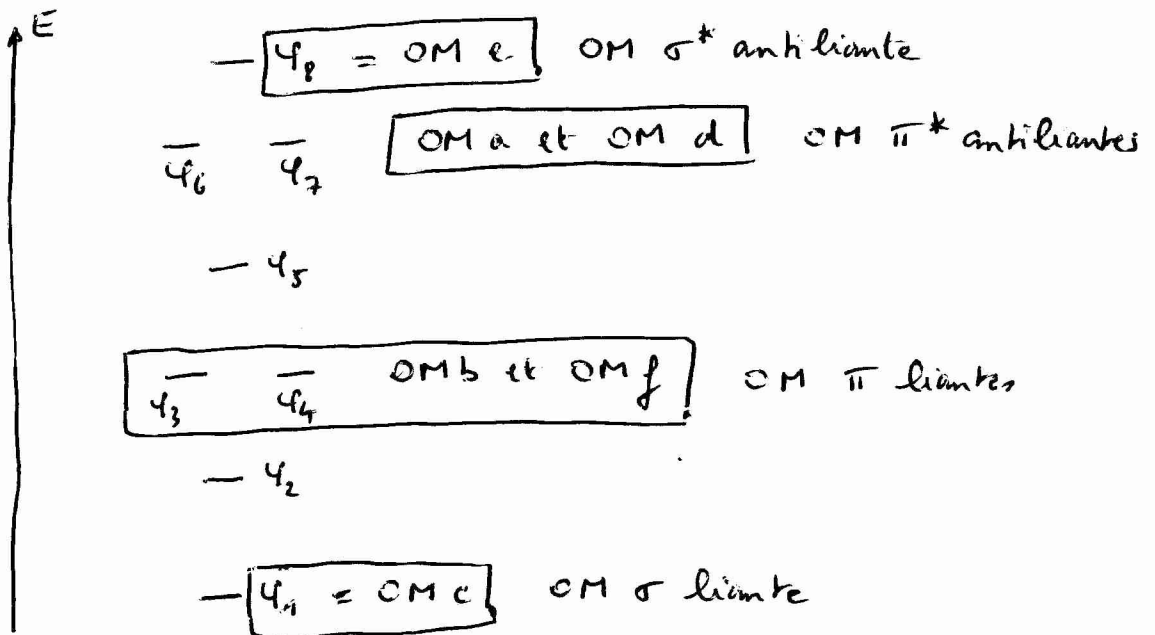 E
φ8 = OM e OM σ* antiliante
φ6 φ7 OM a et OM d OM π* antiliantes
φ5
φ3 φ4 OM b et OM f OM π liantes
φ2
φ1 = OM c OM σ liante